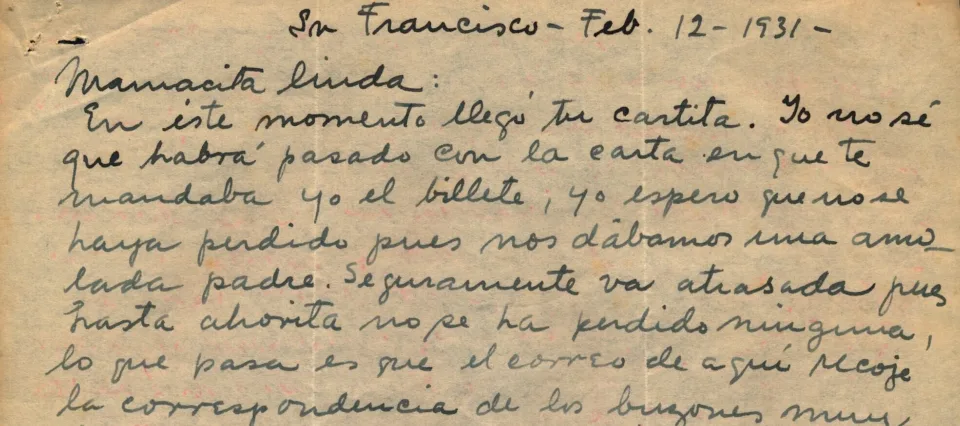 Sn Francisco - Feb. 12 - 1931 -
Mamacita linda:
En éste momento llegó tu cartita. Yo no sé
que habrá pasado con la carta en que te
mandaba yo el billete, yo espero que no se
haya perdido pues nos dábamos una amo-
lada padre. Seguramente va atrasada pues
hasta ahorita no se ha perdido ninguna,
lo que pasa es que el correo de aquí recoje
la correspondencia de los buzones muy